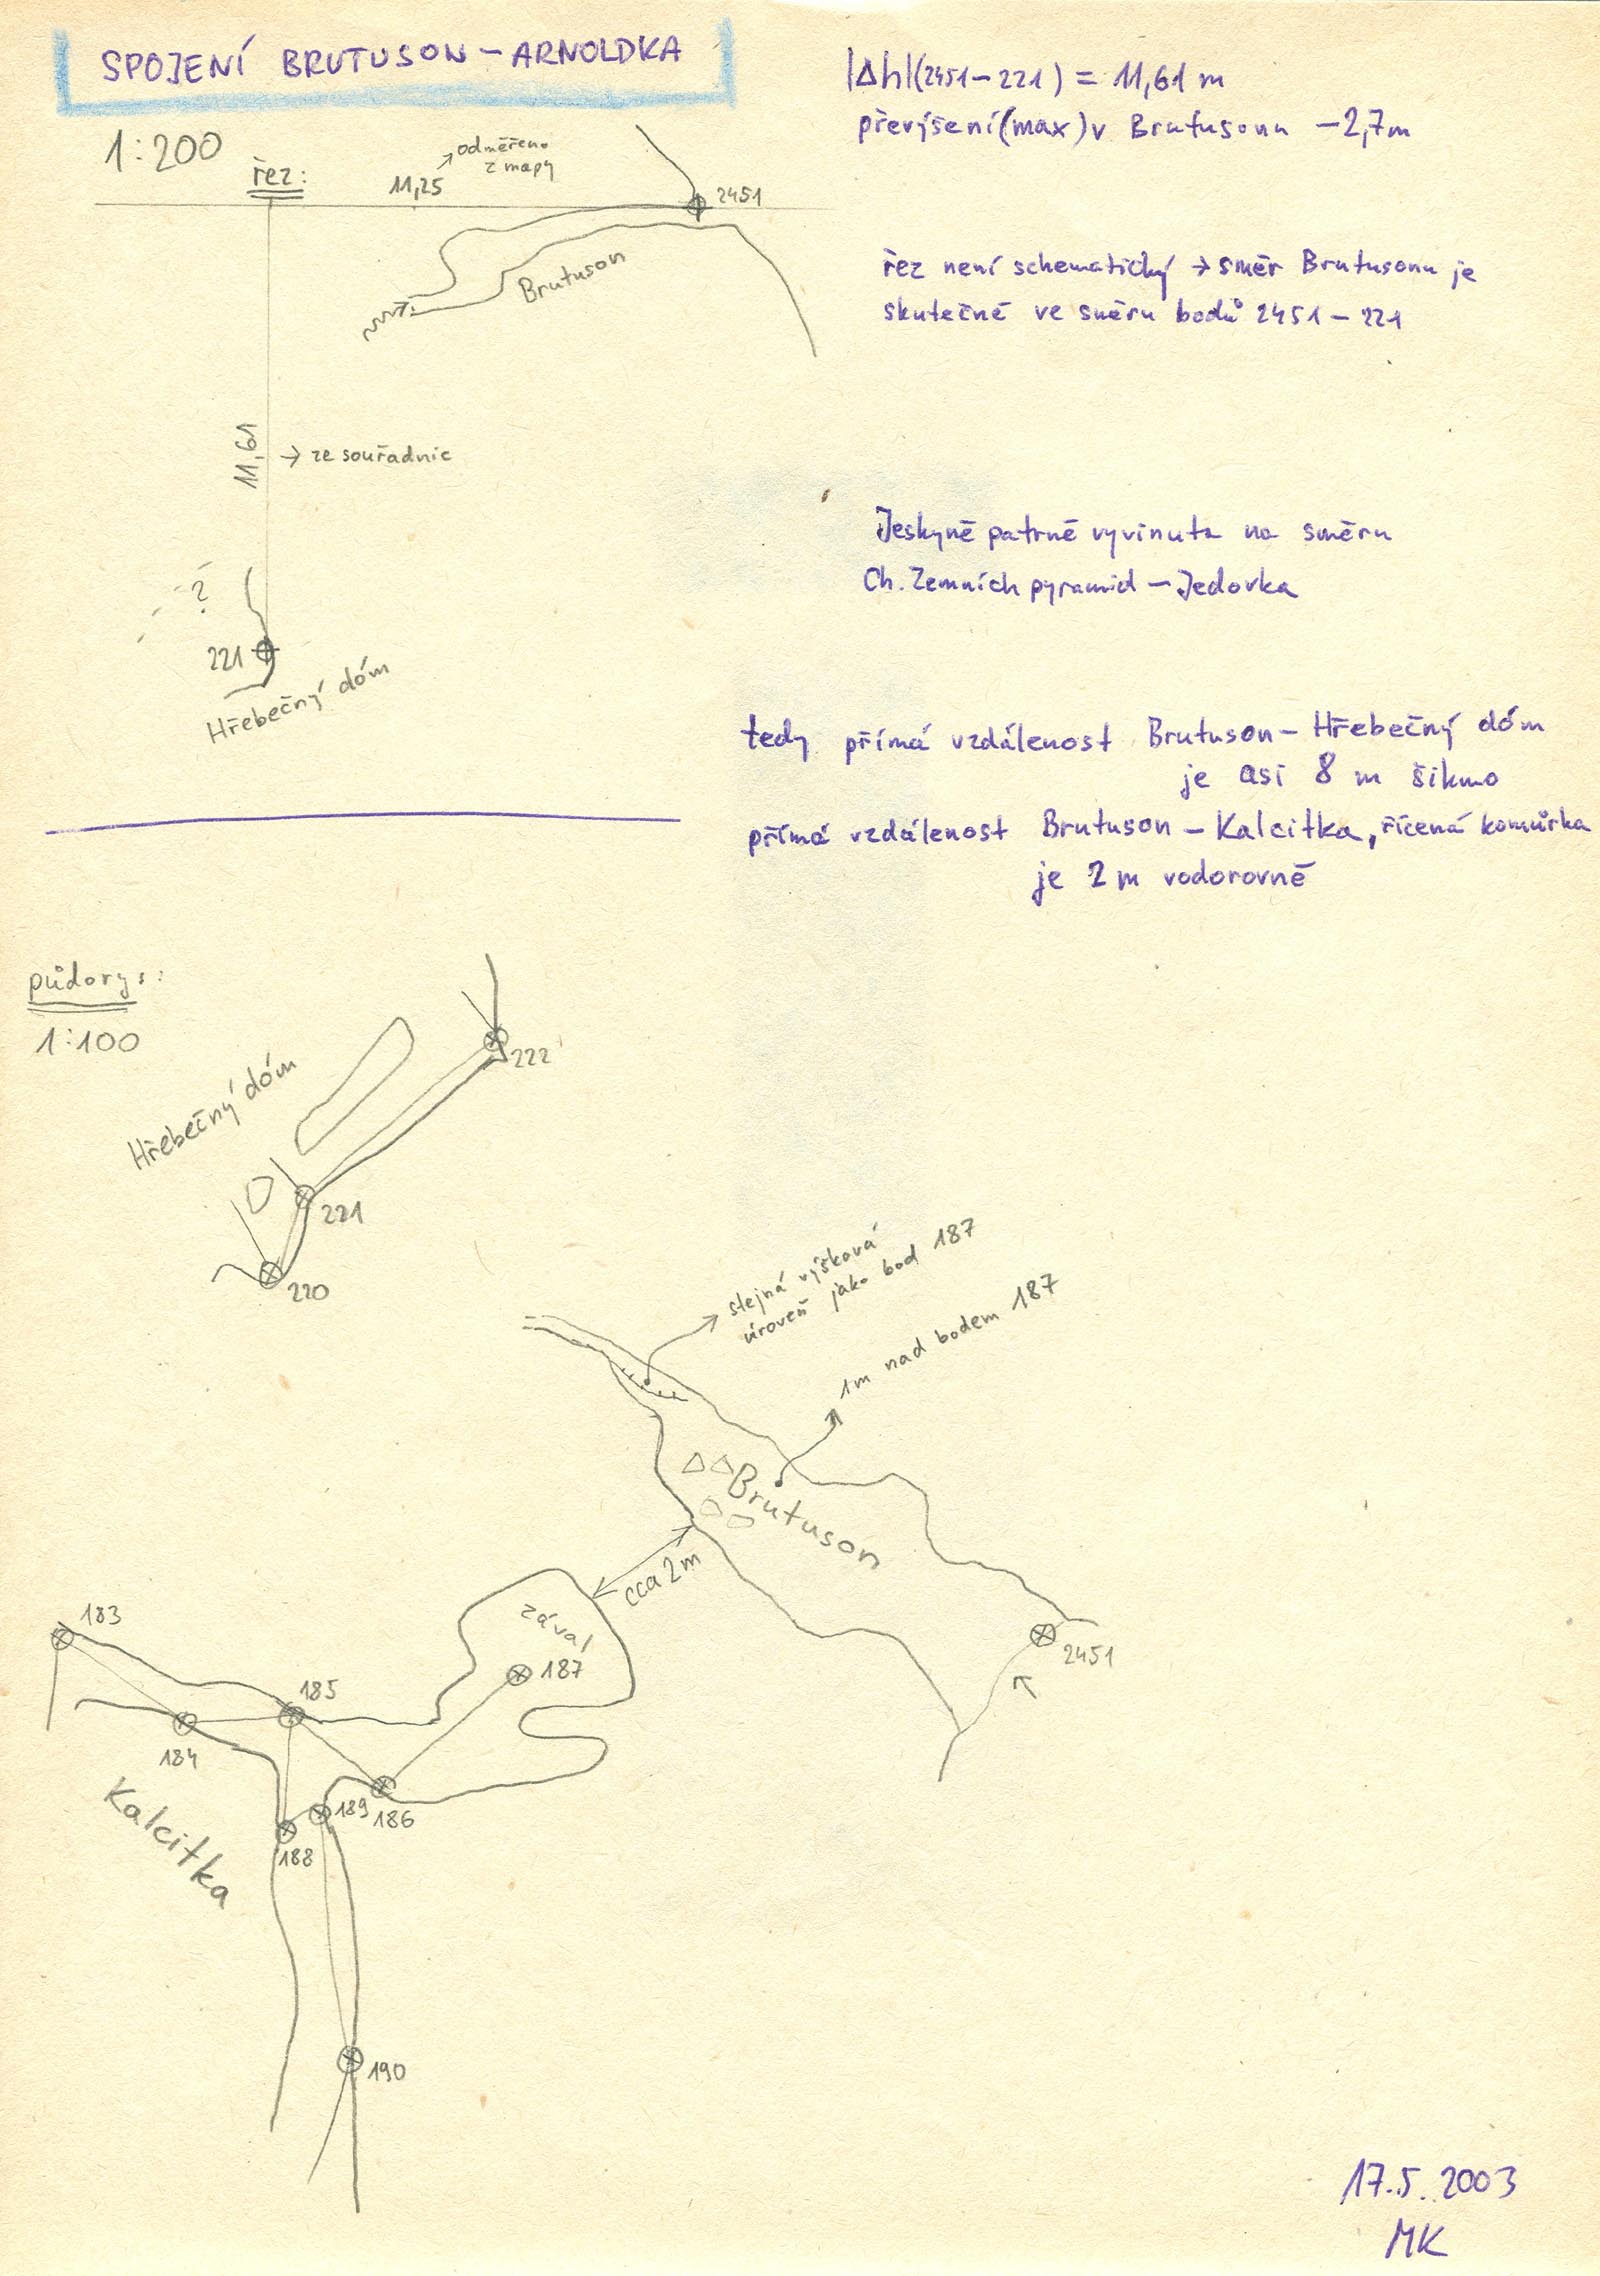 SPOJENÍ BRUTUSON – ARNOLDKA
|Δh|(2451 – 221) = 11,61 m
převýšení (max) v Brutusonu – 2,7m
1:200
řez:
11,25
odměřeno
z mapy
2451
Brutuson
řez není schematický → směr Brutusonu je
skutečně ve směru bodů 2451 – 221
11,61
→ ze souřadnic
Jeskyně patrně vyvinuta na směru
Ch. Zemních pyramid – Jedovka
?
221
Hřebečný dóm
tedy přímá vzdálenost Brutuson – Hřebečný dóm
je asi 8 m šikmo
přímá vzdálenost Brutuson – Kalcitka, řícená komůrka
je 2 m vodorovně
půdorys:
1:100
222
Hřebečný dóm
221
220
stejná výšková
úroveň jako bod 187
1m nad bodem 187
Brutuson
cca 2 m
zával
187
2451
183
185
184
Kalcitka
189
186
188
190
17.5.2003
MK